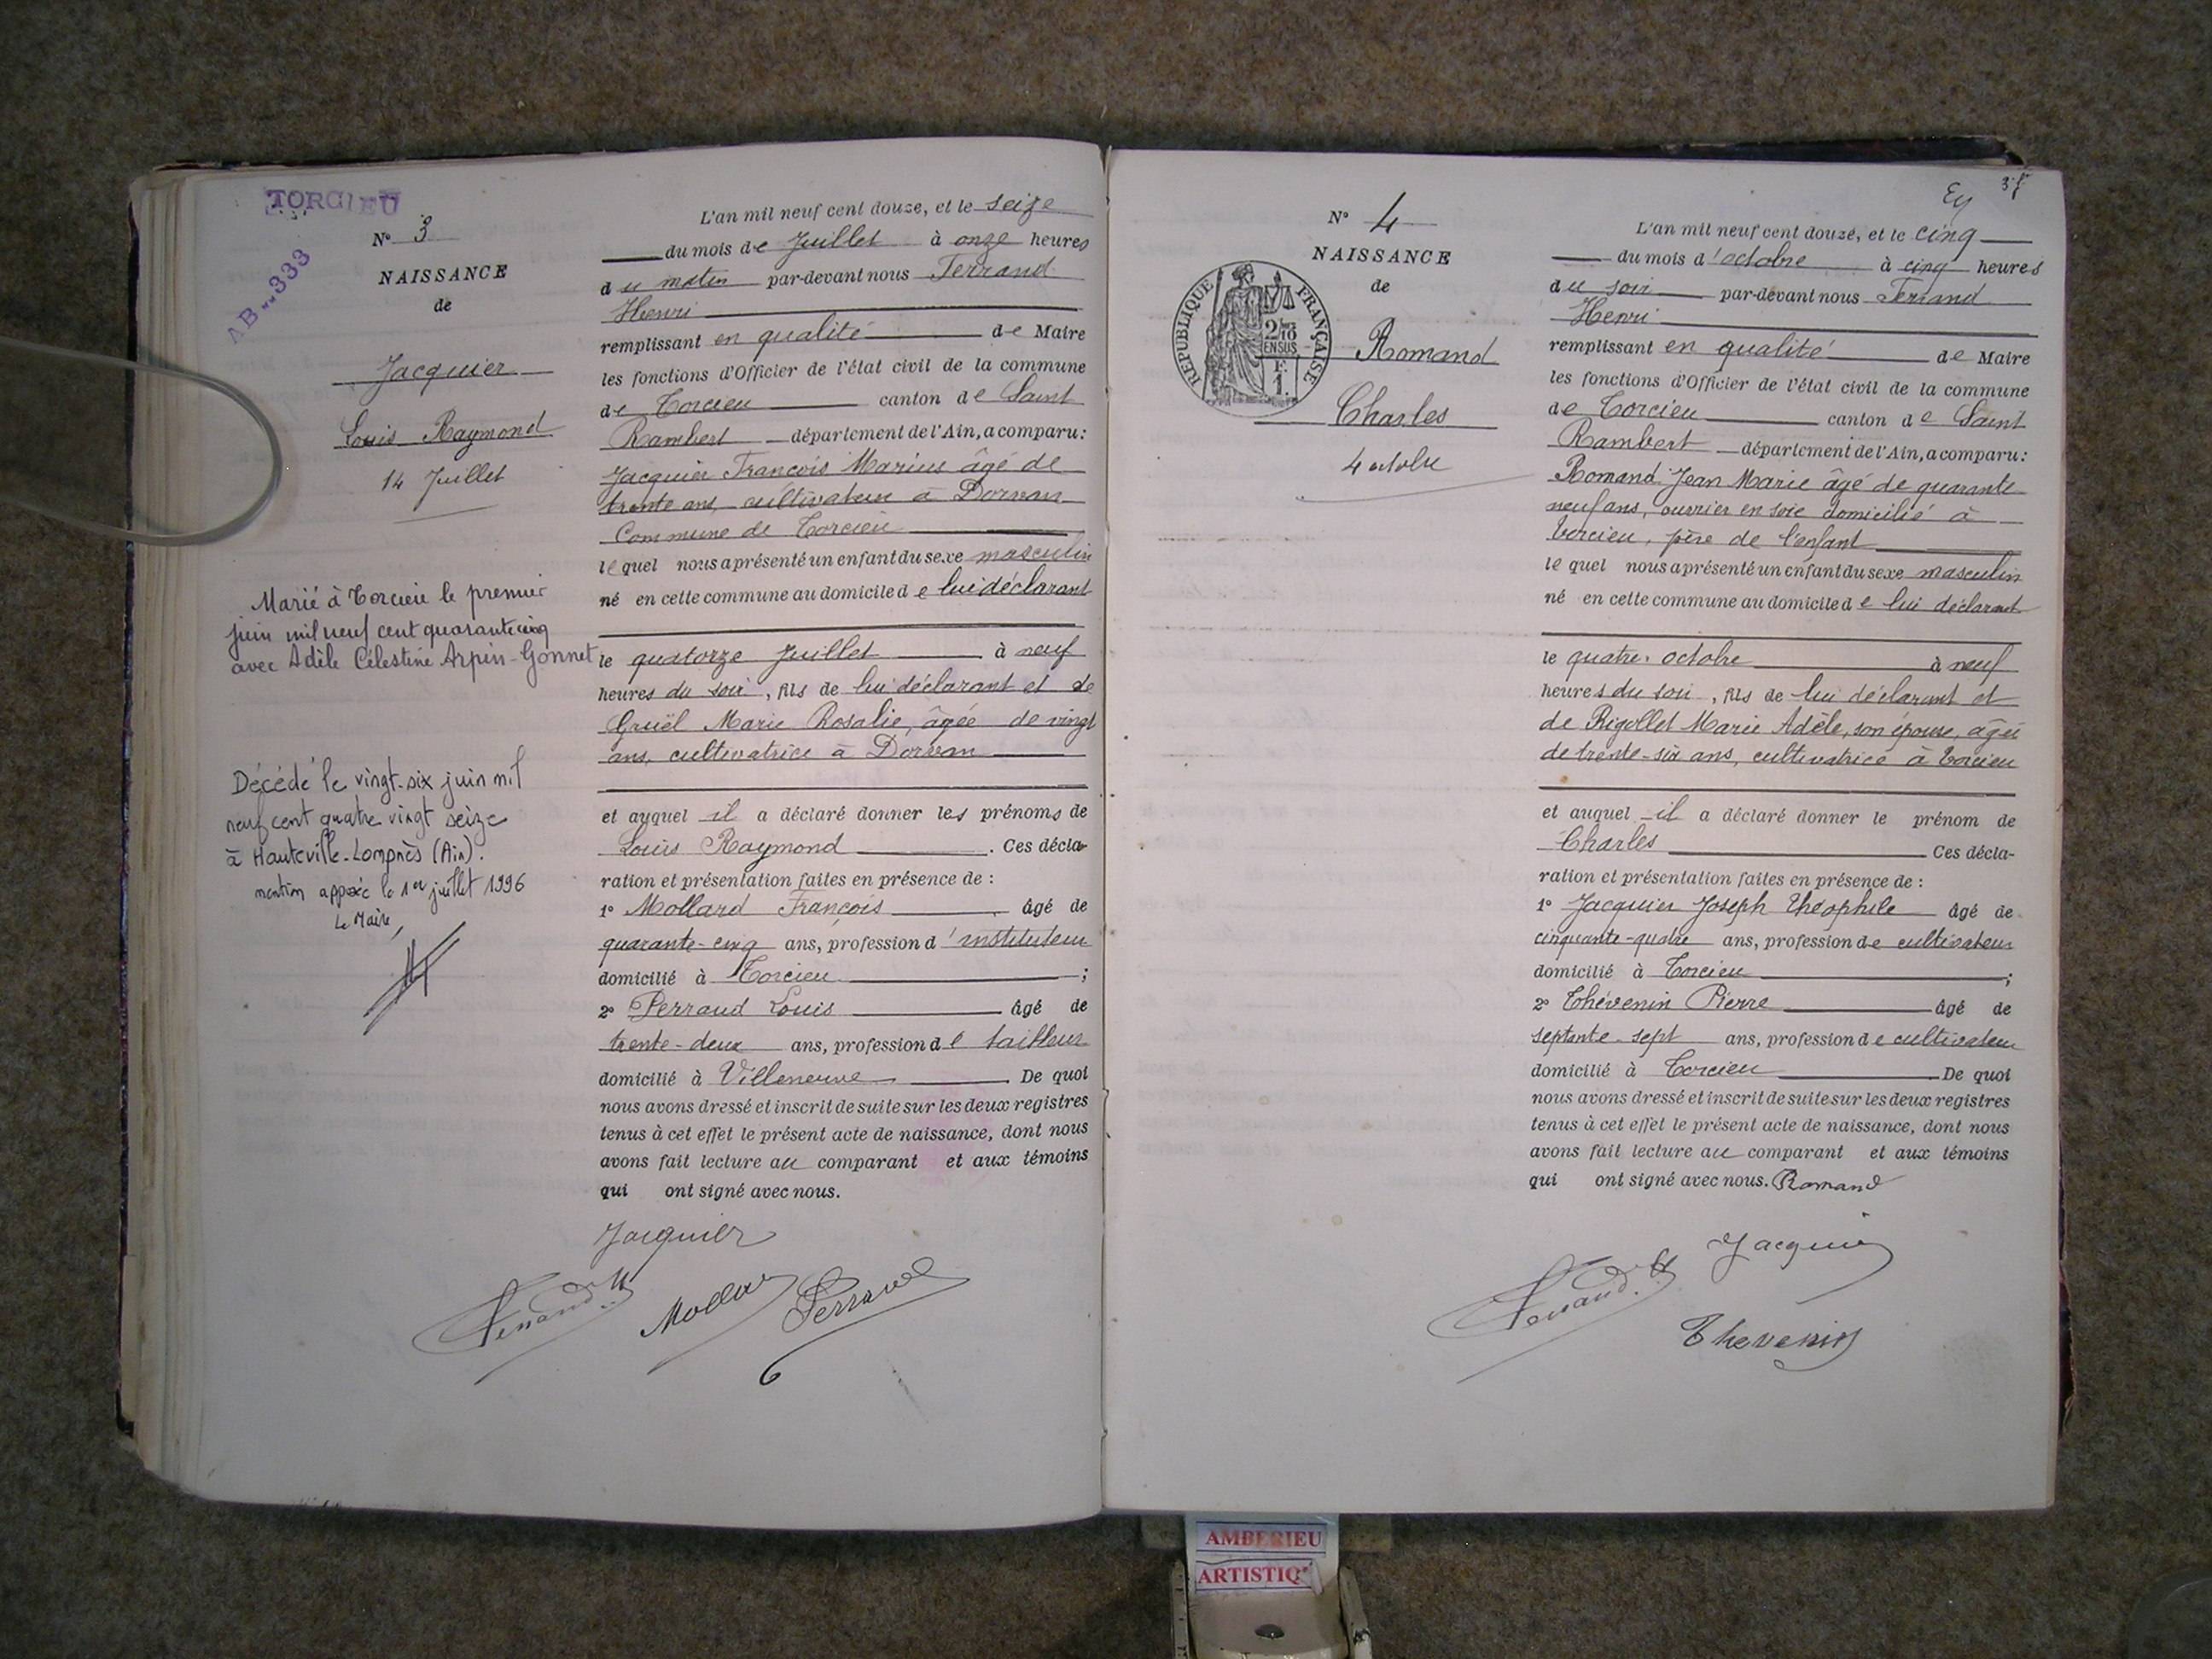 TORCIEU
AB..333
N° 3
NAISSANCE
de
Jacquier
Louis Raymond
14 Juillet
Marié à Torcieu le premier
juin mil neuf cent quarante cinq
avec Adèle Célestine Arpin-Gonnet
Décédé le vingt-six juin mil
neuf cent quatre vingt seize
à Hauteville-Lompnès (Ain).
mention apposée le 1er juillet 1996
Le Maire,
L'an mil neuf cent douze, et le seize
du mois de Juillet à onze heures
du matin par-devant nous Ferrand
Henri
remplissant en qualité de Maire
les fonctions d'Officier de l'état civil de la commune
de Torcieu canton de Saint
Rambert département de l'Ain, a comparu:
Jacquier François Marius âgé de
trente ans, cultivateur à Dorvan
Commune de Torcieu
lequel nous a présenté un enfant du sexe masculin
né en cette commune au domicile de lui déclarant
le quatorze Juillet à neuf
heures du soir, fils de lui déclarant et de
Gruël Marie Rosalie, âgée de vingt
ans, cultivatrice à Dorvan
et auquel il a déclaré donner les prénoms de
Louis Raymond. Ces décla-
ration et présentation faites en présence de :
1° Mollard François âgé de
quarante-cinq ans, profession d'instituteur
domicilié à Torcieu ;
2° Perraud Louis âgé de
trente-deux ans, profession de tailleur
domicilié à Villeneuve. De quoi
nous avons dressé et inscrit de suite sur les deux registres
tenus à cet effet le présent acte de naissance, dont nous
avons fait lecture au comparant et aux témoins
qui ont signé avec nous.
Jacquier
Ferrand H Mollard Perraud
Ey 3 f
N° 4
NAISSANCE
de
RÉPUBLIQUE FRANÇAISE
2/10
EN SUS
F.
1.
Romand
Charles
4 octobre
L'an mil neuf cent douze, et le cinq
du mois d'octobre à cinq heures
du soir par-devant nous Ferrand
Henri
remplissant en qualité de Maire
les fonctions d'Officier de l'état civil de la commune
de Torcieu canton de Saint
Rambert département de l'Ain, a comparu:
Romand Jean Marie âgé de quarante
neuf ans, ouvrier en soie domicilié à
Torcieu, père de l'enfant
lequel nous a présenté un enfant du sexe masculin
né en cette commune au domicile de lui déclarant
le quatre octobre à neuf
heures du soir, fils de lui déclarant et
de Rigollet Marie Adèle, son épouse, âgée
de trente-six ans, cultivatrice à Torcieu
et auquel il a déclaré donner le prénom de
Charles Ces décla-
ration et présentation faites en présence de :
1° Jacquier Joseph Théophile âgé de
cinquante-quatre ans, profession de cultivateur
domicilié à Torcieu ;
2° Thévenin Pierre âgé de
septante-sept ans, profession de cultivateur
domicilié à Torcieu. De quoi
nous avons dressé et inscrit de suite sur les deux registres
tenus à cet effet le présent acte de naissance, dont nous
avons fait lecture au comparant et aux témoins
qui ont signé avec nous. Romand
Jacquier
Ferrand H
Thevenin
AMBERIEU
ARTISTIQ